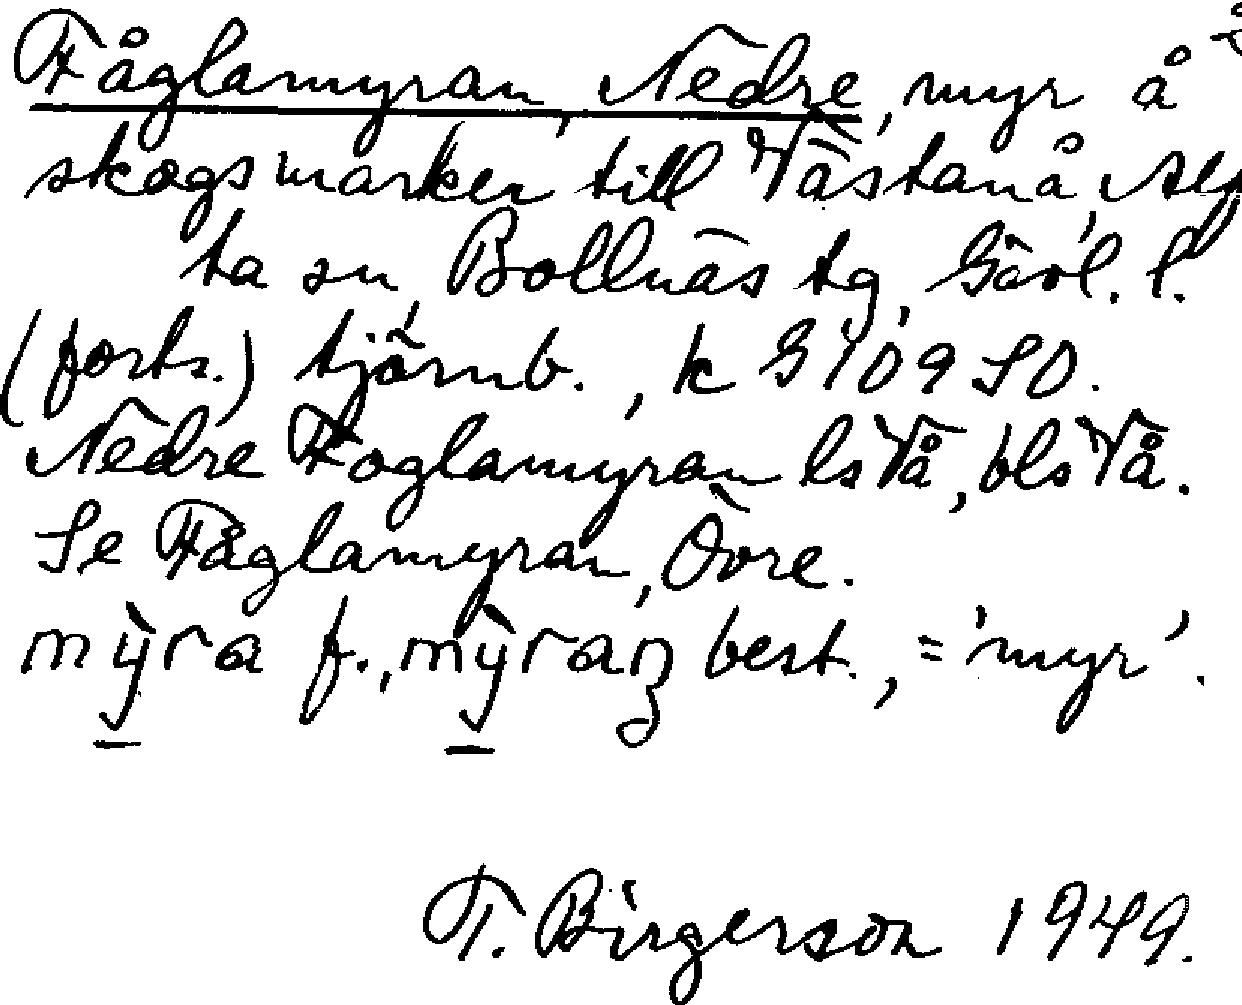 Fåglamyran, Nedre, myr å
skogsmarken till Västanå, Alf
ta sn, Bollnäs tg, Gävl. l.
(forts.) tjärnb., k G 109 SO.
Nedre Foglamyran ls Vå, bls Vå.
Se Fåglamyran, Övre.
mỳra f., mỳraŋ best., = 'myr'.
T. Birgerson 1949.